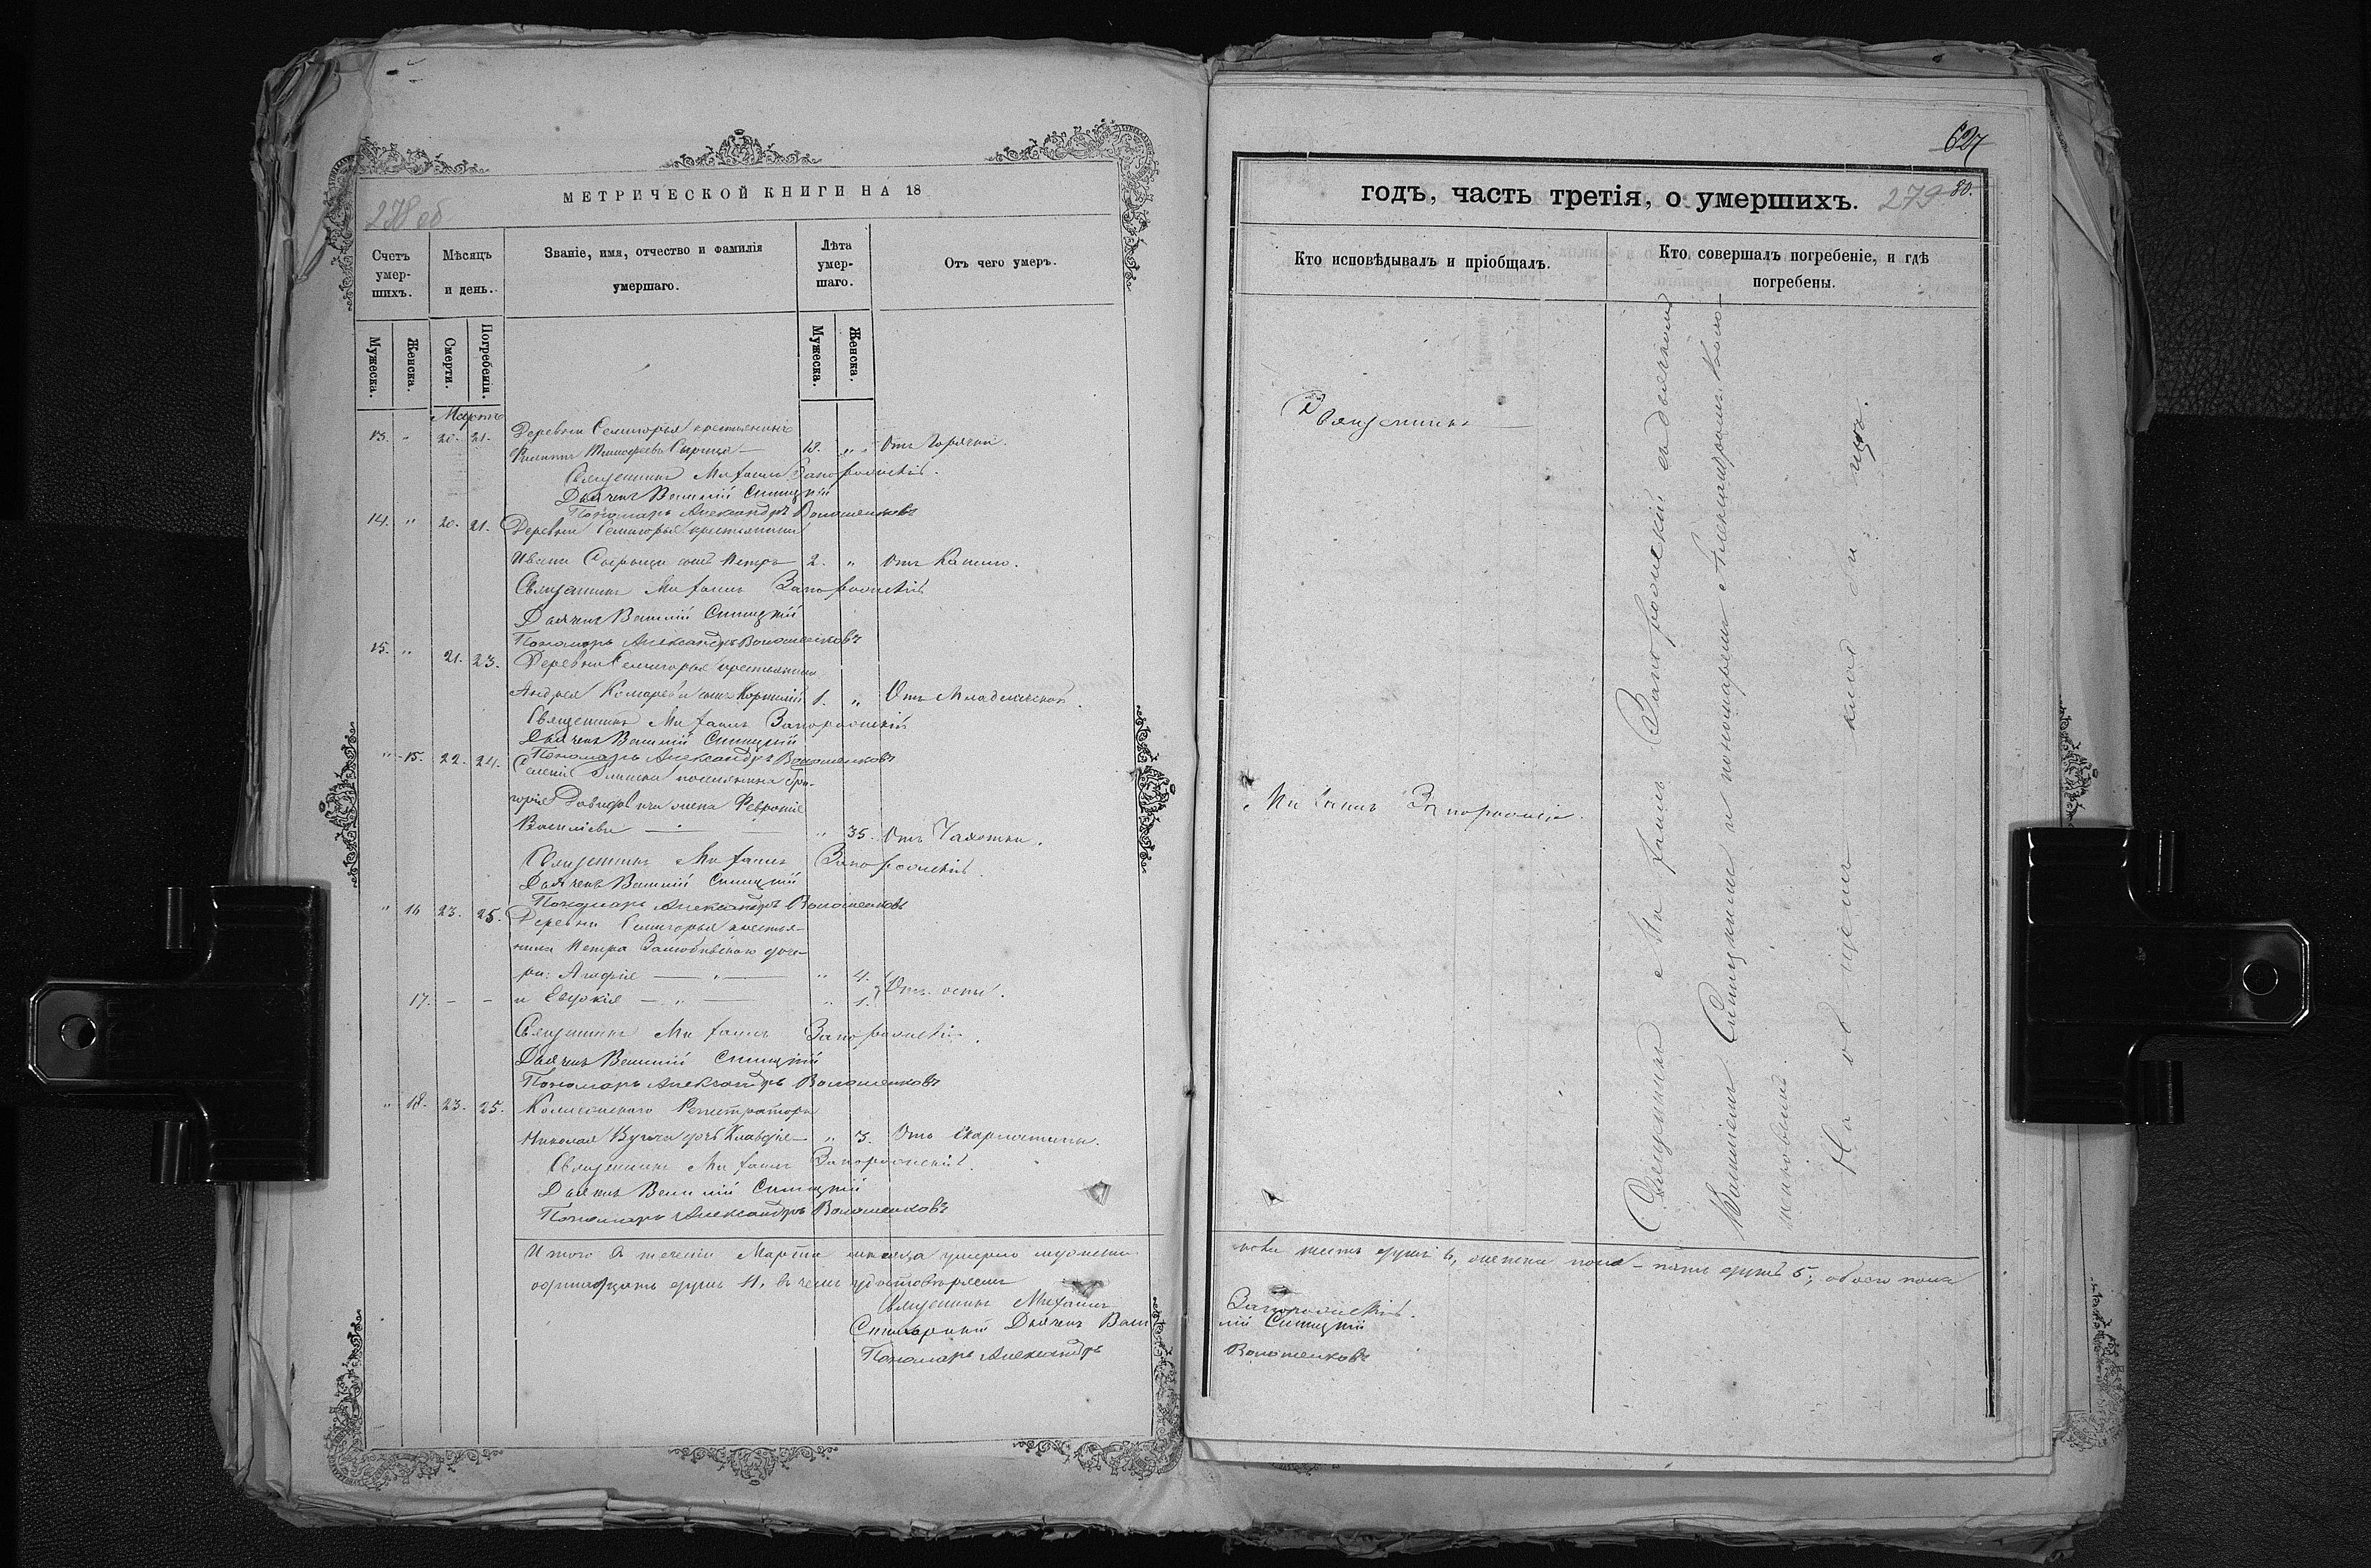 МЕТРИЧЕСКОЙ КНИГИ НА 18
278 об
Счетъ умер-шихъ.
Мѣсяцъ и день.
Званіе, имя, отчество и фамилія умершаго.
Лѣта умер-шаго.
Отъ чего умеръ.
Мужеска.
Женска.
Смерти.
Погребенія.
Мужеска.
Женска.
Мартъ
13. " 20. 21. Деревни Семигорья крестьянинъ
Филиппъ Тимофеевъ 18. " Отъ Горячки.
Священникъ Михаилъ Запорожскій.
Дьячекъ Василій Синицкій
Пономарь Александръ Волошенковъ
14. " 20. 21. Деревни Семигорья крестьянина
Ивана сынъ Петръ 2. " Отъ Кашлю.
Священникъ Михаилъ Запорожскій
Дьячекъ Василій Синицкій
Пономарь Александръ Волошенковъ
15. " 21. 23. Деревни Семигорья крестьянина
Андрея сынъ 1. " Отъ Младенческой.
Священникъ Михаилъ Запорожскій
Дьячекъ Василій Синицкій
Пономарь Александръ Волошенковъ
" 15. 22. 24. поселянина Гри-
горія жена Февронія
Васильева " 35. Отъ Чахотки.
Священникъ Михаилъ Запорожскій.
Дьячекъ Василій Синицкій
Пономарь Александръ Волошенковъ
" 16 23. 25. Деревни Семигорья крестья-
нина Петра доче-
ри: Агафія " 4.
17. - - и Евдокія " 1. Отъ оспы.
Священникъ Михаилъ Запорожскій.
Дьячекъ Василій Синицкій
Пономарь Александръ Волошенковъ
" 18. 23. 25. Коллежскаго Регистратора
Николая дочь Клавдія " 3. Отъ Скарлатины.
Священникъ Михаилъ Запорожскій.
Дьячекъ Василій Синицкій
Пономарь Александръ Волошенковъ
Итого въ теченіи Марта мѣсяца умерло мужеска
одинадцать душъ 11, въ чемъ удостовѣряемъ
Священникъ Михаилъ
Дьячекъ Васи
Пономарь Александръ
627
годъ, часть третія, о умершихъ.
279
80.
Кто исповѣдывалъ и пріобщалъ.
Кто совершалъ погребеніе, и гдѣ погребены.
Священникъ
Михаилъ Запорожскій.
Священникъ Михаилъ Запорожскій съ дьячкомъ
Василіемъ Синицкимъ и пономаремъ Александромъ Воло-
шенковымъ.
На общемъ кладбищѣ.
пола шесть душъ 6, женска пола - пять душъ 5; обоего пола
Запорожскій.
лій Синицкій
Волошенковъ